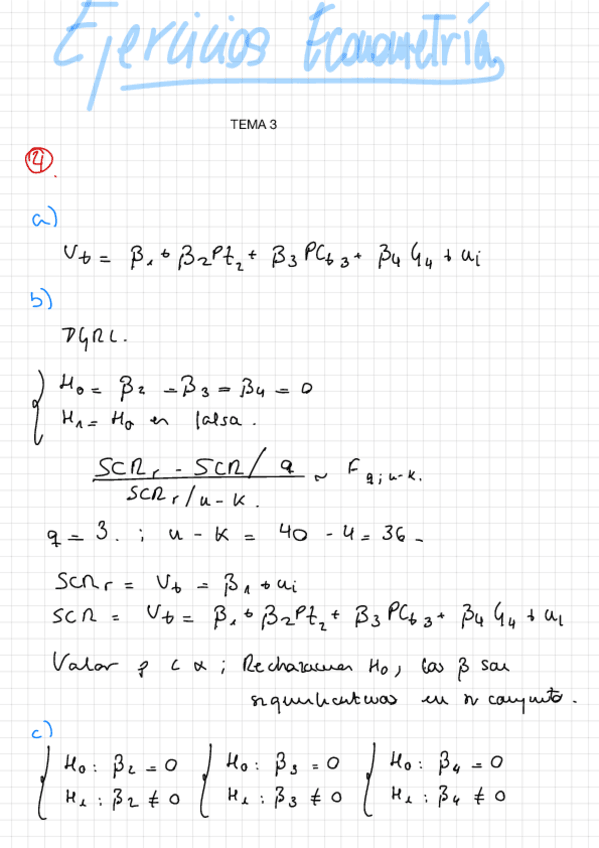 Ejercicios Econometría
TEMA 3
4
a)
Vt = β1 + β2Pt2 + β3PCt3 + β4G4 + ui
b)
H0 = β2 = β3 = β4 = 0
H1 = H0 es falsa.
SCRr - SCR / q
SCRr / n - k. ~ Fq; n-k.
q = 3. ; n - k = 40 - 4 = 36
SCRr = Vt = β1 + ui
SCR = Vt = β1 + β2Pt2 + β3PCt3 + β4G4 + ui
Valor p < α ; Rechazamos H0, las β son
significativas en su conjunto.
c)
H0: β2 = 0 H0: β3 = 0 H0: β4 = 0
H1: β2 ≠ 0 H1: β3 ≠ 0 H1: β4 ≠ 0